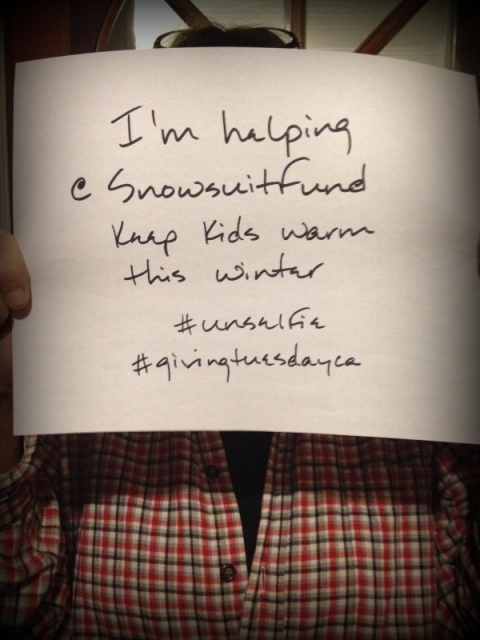 I'm helping
@ Snowsuitfund
Keep Kids warm
this winter
#unselfie
#givingtuesdayca